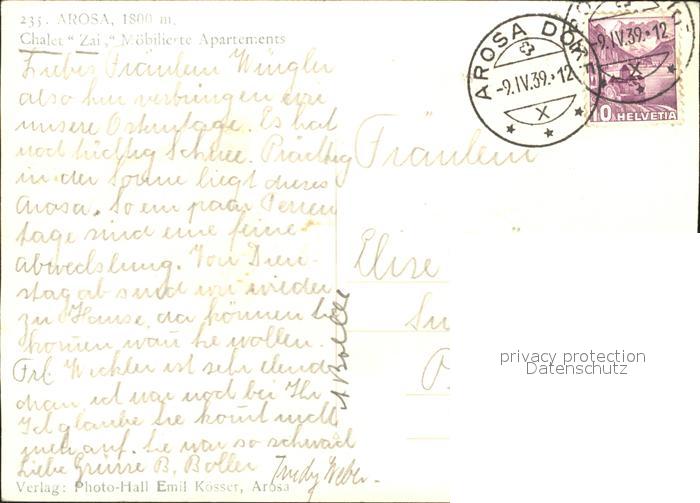 235. AROSA, 1800 m.
Chalet "Zai," Möbilierte Apartements
Liebes Fräulein Wüngler
also hier verbringen wir
unsere Ostertage. Es hat
noch tüchtig Schnee. Prächtig
in der Sonne liegt dieses
Arosa. So ein paar Ferien
tage sind eine feine
abwechslung. Von Dien-
stag ab sind wir wieder
zu Hause, da können Sie
kommen wan Sie wollen.
Frl. Weckler ist sehr elend
dran, ich war noch bei Ihr
Ich glaube Sie komt nicht
mehr auf. Sie war so schwach
Liebe Grüsse B. Boller
Trudy Weber.
A Boller
Verlag: Photo-Hall Emil Kosser, Arosa
Fräulein
Elise
AROSA DORF
-9.IV.39.-12
X
-9.IV.39.-12
X
10 HELVETIA
privacy protection
Datenschutz